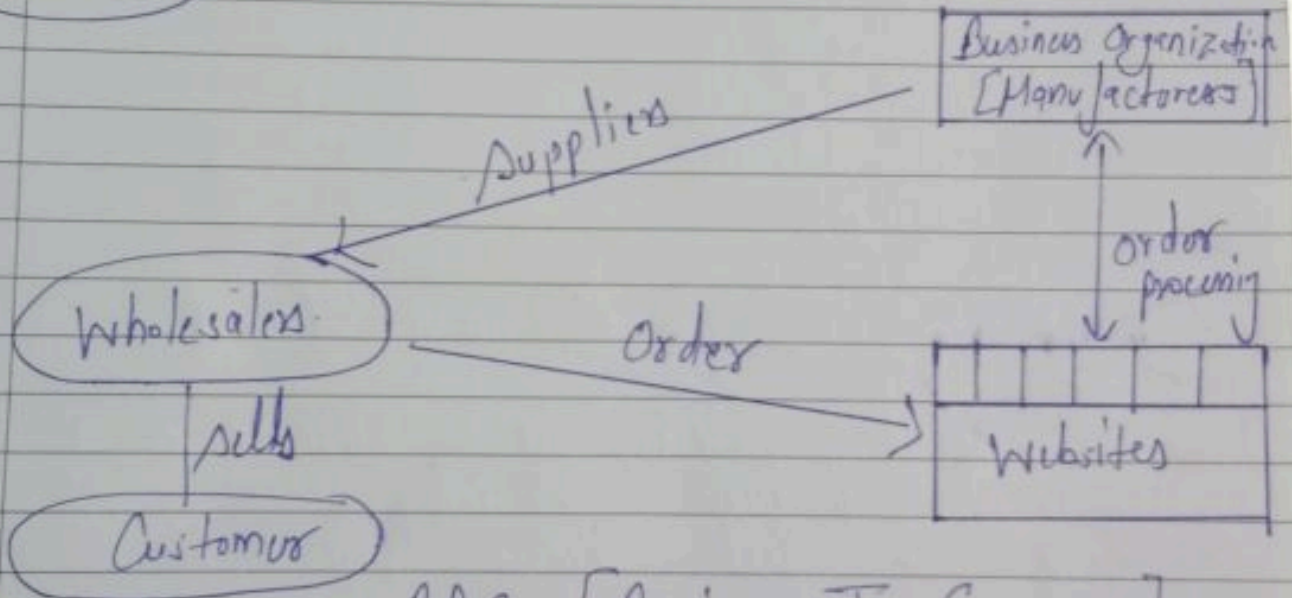 Business Organization
[Manufactorers]
Suppliers
Order
processing
Wholesalers
Order
sells
Websites
Customer